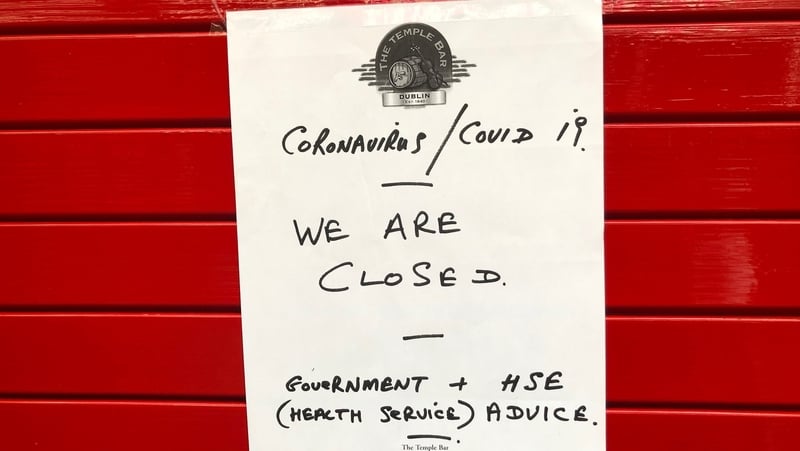 THE TEMPLE BAR
DUBLIN
EST. 1840
CORONAVIRUS / COVID 19.
WE ARE
CLOSED.
GOVERNMENT + HSE
(HEALTH SERVICE) ADVICE.
The Temple Bar